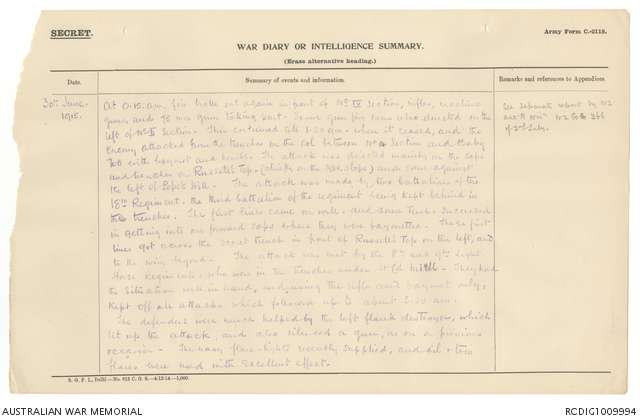 SECRET.
Army Form C.-2118.
WAR DIARY OR INTELLIGENCE SUMMARY.
(Erase alternative heading.)
Date.
Summary of events and information.
Remarks and references to Appendices.
30th June
1915.
At 0-15 a.m. fire broke out again in front of No IV Section, rifles, machine
guns and 75 mm guns taking part. Some gun fire was also directed on the
left of No Section. This continued till 1-30 a.m. when it ceased, and the
enemy attacked from the trenches on the col between No 4 Section and Baby
700 with bayonet and bombs. The attack was directed mainly on the saps
and trenches on Russell's Top, (chiefly on the slopes) and some against
the left of Pope's Hill. The attack was made by two battalions of the
18th Regiment, the third battalion of the regiment being kept behind in
the trenches. The first lines came on well, and some Turks succeeded
in getting into our forward saps where they were bayonetted. These first
lines got across the secret trench in front of Russell's Top on the left, and
to the wire beyond. The attack was met by the 8th and 9th Light
Horse Regiments, who were in the trenches under Lt Col. They had
the situation well in hand, and using the rifle and bayonet only,
kept off all attacks which followed up to about 3-30 a.m.
The defenders were much helped by the left flank destroyers, which
lit up the attack, and also silenced a gun, as on a previous
occasion. The navy flare-lights recently supplied, and oil & tow
flares were used with excellent effect.
See separate report by NZ
and A Divn NZ G 366
of 2nd July.
S. G. P. I., Delhi—No. 813 C. G. S.—4-12-14—1,000.
AUSTRALIAN WAR MEMORIAL
RCDIG1009994